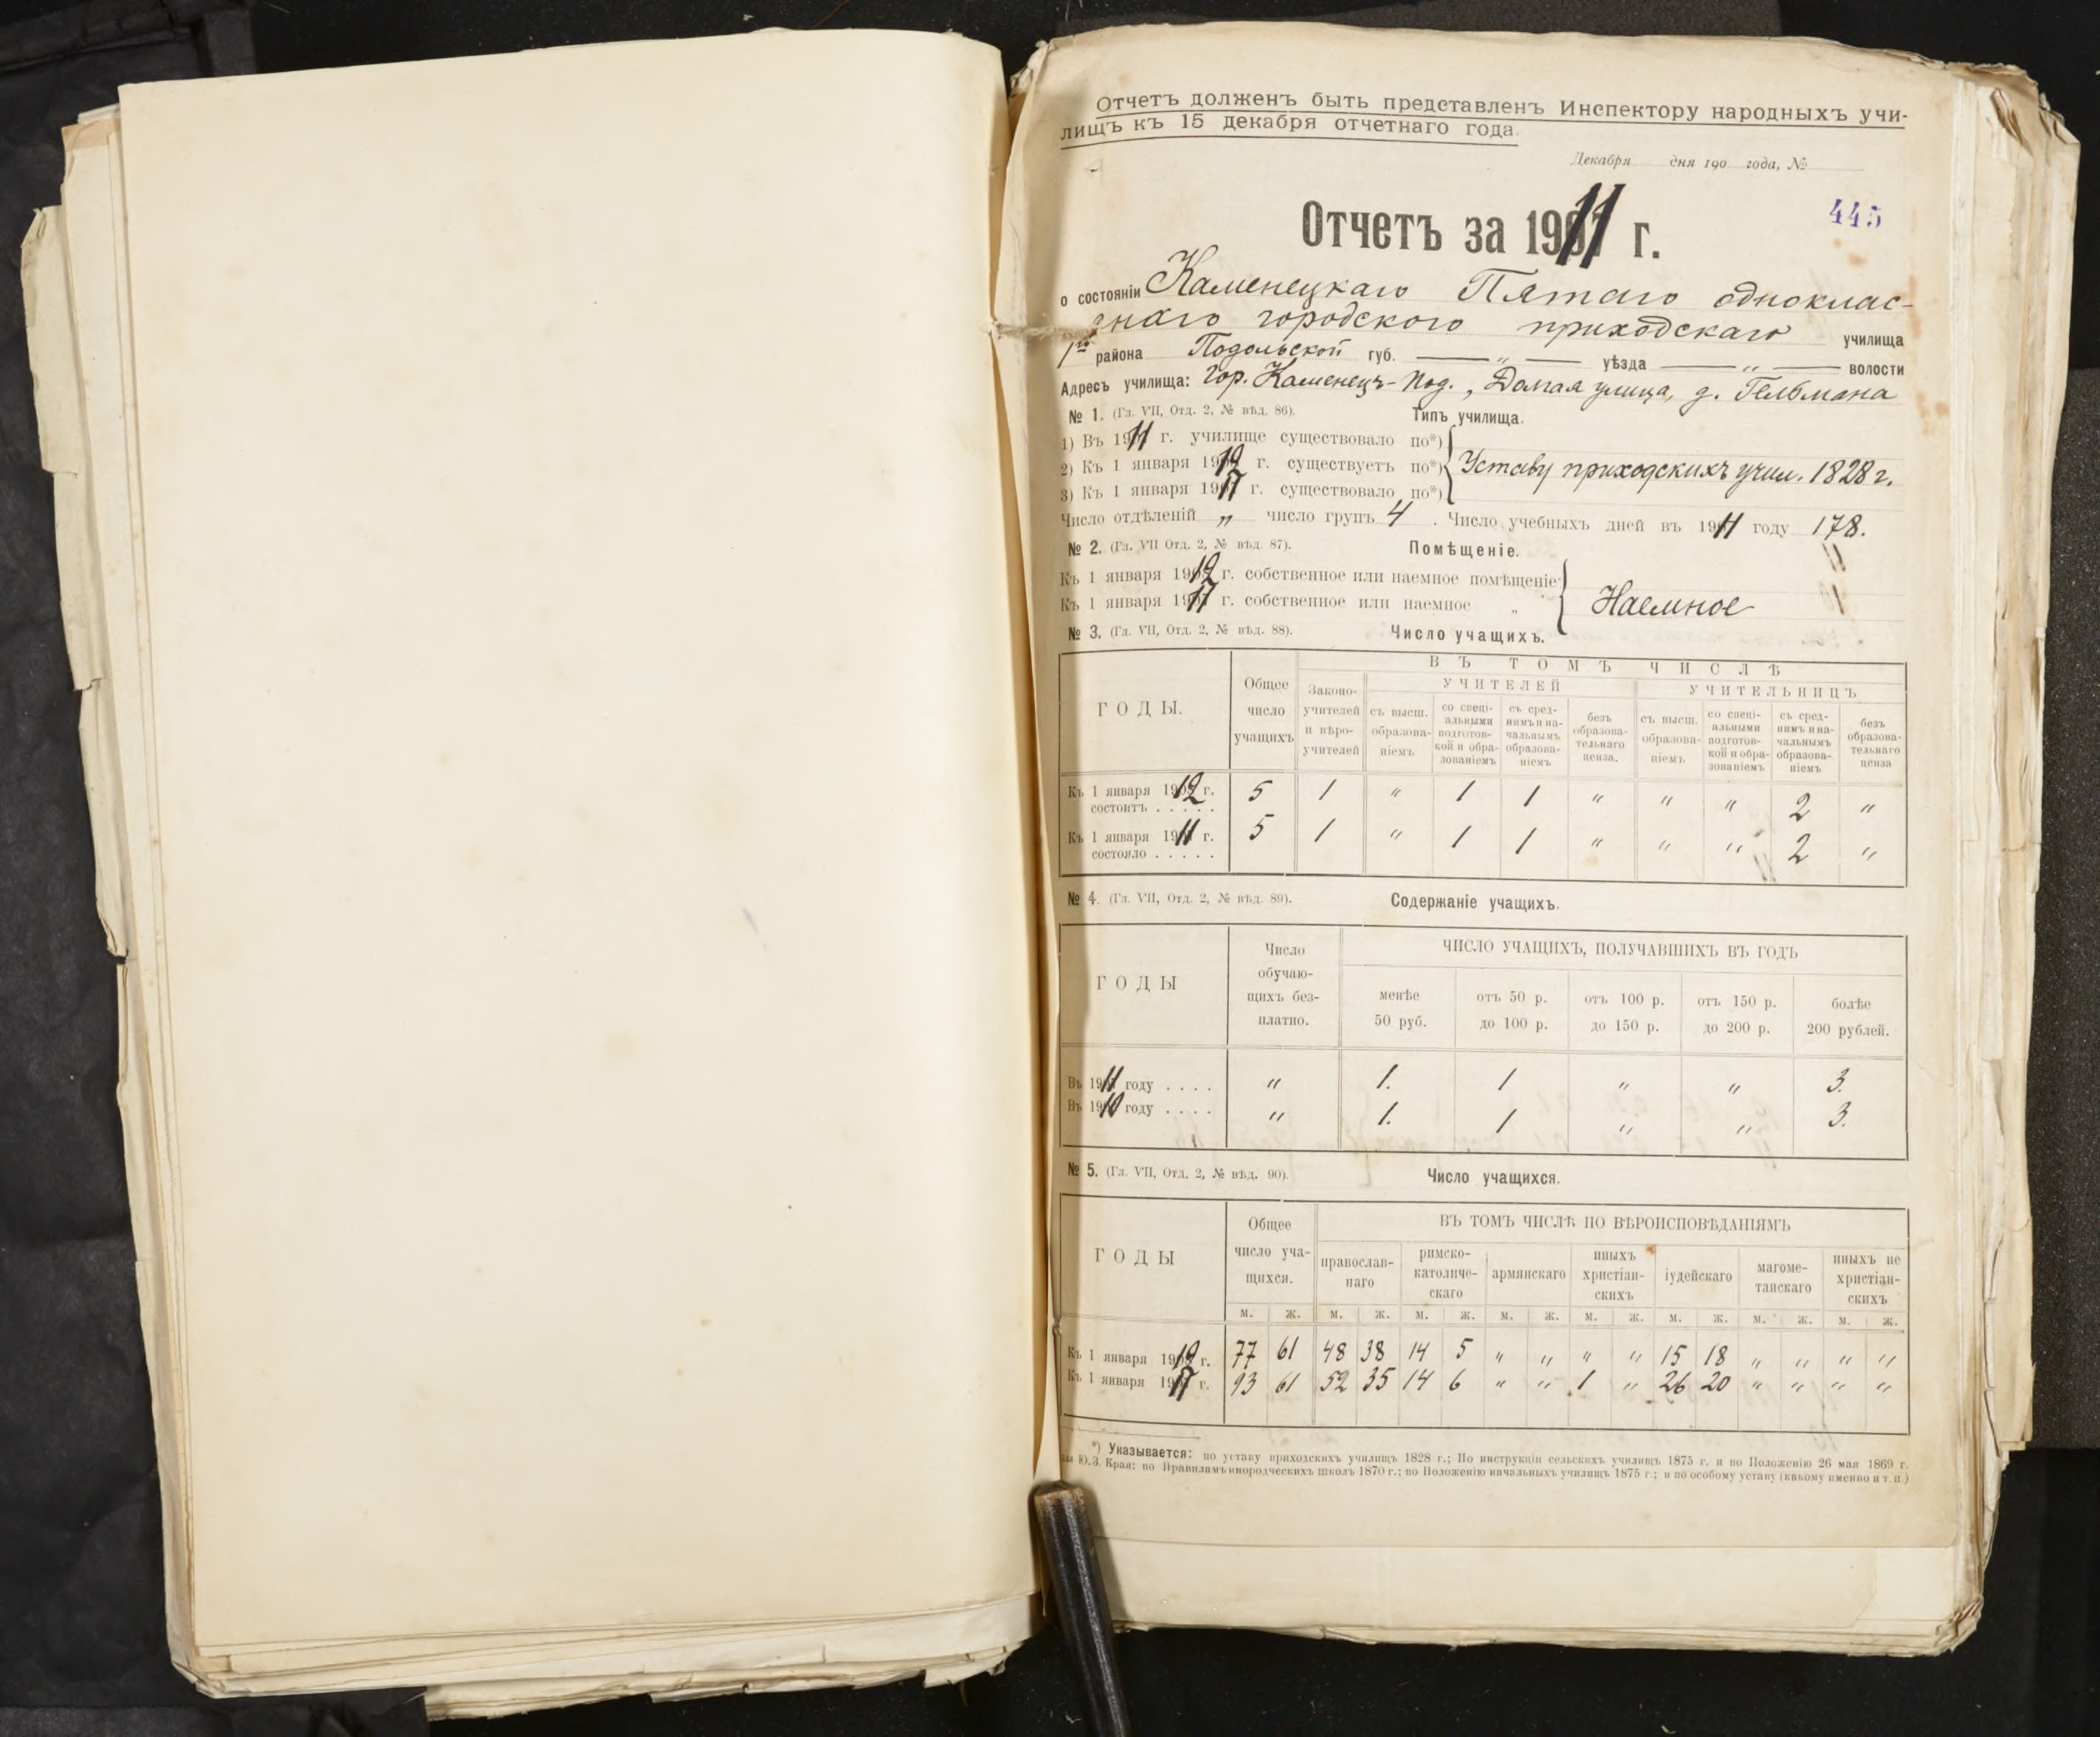 Отчетъ долженъ быть представленъ Инспектору народныхъ учи-
лищъ къ 15 декабря отчетнаго года.
Декабря дня 190 года, №
445
Отчетъ за 1911 г.
о состояніи Каменецкаго Пятаго одноклас-
снаго городского приходскаго училища
1го района Подольской губ. — „ — уѣзда — „ — волости
Адресъ училища: Гор. Каменецъ-Под., Долгая улица, д. Гельмана
№ 1. (Гл. VII, Отд. 2, № вѣд. 86). Типъ училища.
1) Въ 1911 г. училище существовало по*)
2) Къ 1 января 1912 г. существуетъ по*) Уставу приходскихъ учил. 1828 г.
3) Къ 1 января 1911 г. существовало по*)
Число отдѣленій „ число групъ 4. Число учебныхъ дней въ 1911 году 178.
№ 2. (Гл. VII Отд. 2, № вѣд. 87). Помѣщеніе.
Къ 1 января 1912 г. собственное или наемное помѣщеніе
Къ 1 января 1911 г. собственное или наемное „ Наемное
№ 3. (Гл. VII, Отд. 2, № вѣд. 88). Число учащихъ.
ГОДЫ.
Общее число учащихъ
ВЪ ТОМЪ ЧИСЛѢ
Законо-учителей и вѣро-учителей
УЧИТЕЛЕЙ
УЧИТЕЛЬНИЦЪ
съ высш. образова-ніемъ
со спеці-альными подготов-кой и обра-зованіемъ
съ сред-нимъ и на-чальнымъ образова-ніемъ
безъ образова-тельнаго ценза.
съ высш. образова-ніемъ
со спеці-альными подготов-кой и обра-зованіемъ
съ сред-нимъ и на-чальнымъ образова-ніемъ
безъ образова-тельнаго ценза
Къ 1 января 1912 г. состоитъ . . . . . 5 1 „ 1 1 „ „ „ 2 „
Къ 1 января 1911 г. состояло . . . . . 5 1 „ 1 1 „ „ „ 2 „
№ 4. (Гл. VII, Отд. 2, № вѣд. 89). Содержаніе учащихъ.
ГОДЫ
Число обучаю-щихъ без-платно.
ЧИСЛО УЧАЩИХЪ, ПОЛУЧАВШИХЪ ВЪ ГОДЪ
менѣе 50 руб.
отъ 50 р. до 100 р.
отъ 100 р. до 150 р.
отъ 150 р. до 200 р.
болѣе 200 рублей.
Въ 1911 году . . . . „ 1. 1 „ „ 3.
Въ 1910 году . . . . „ 1. 1 „ „ 3.
№ 5. (Гл. VII, Отд. 2, № вѣд. 90). Число учащихся.
ГОДЫ
Общее число уча-щихся.
ВЪ ТОМЪ ЧИСЛѢ ПО ВѢРОИСПОВѢДАНІЯМЪ
православ-наго
римско-католиче-скаго
армянскаго
иныхъ христіан-скихъ
іудейскаго
магоме-танскаго
иныхъ не христіан-скихъ
м. ж. м. ж. м. ж. м. ж. м. ж. м. ж. м. ж. м. ж.
Къ 1 января 1912 г. 77 61 48 38 14 5 „ „ „ „ 15 18 „ „ „ „
Къ 1 января 1911 г. 93 61 52 35 14 6 „ „ 1 „ 26 20 „ „ „ „
*) Указывается: по уставу приходскихъ училищъ 1828 г.; По инструкціи сельскихъ училищъ 1875 г. и по Положенію 26 мая 1869 г.
Ю.З. Края: по Правиламъ инородческихъ школъ 1870 г.; по Положенію начальныхъ училищъ 1875 г.; и по особому уставу (какому именно и т. п.)